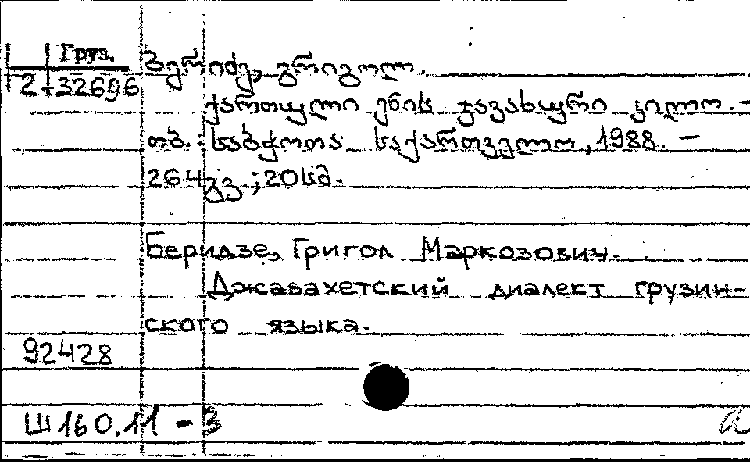 Груз.
2-32696
ბერიძე, გრიგოლ.
ქართული ენის ჯავახური კილო. -
თბ. : საბჭოთა საქართველო, 1988. -
264 გვ. ; 20 სმ.
Беридзе, Григол Маркозович.
Джавахетский диалект грузин-
ского языка.
92428
Ш 160.11 - 3
а